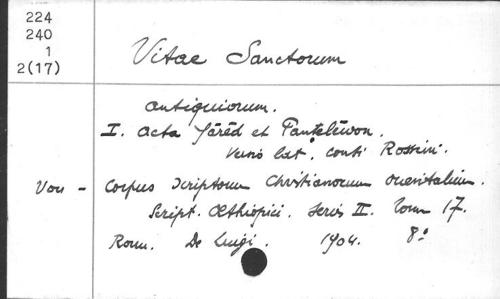 224
240
1
2(17)
Vitae Sanctorum
antiquiorum.
I. Acta Yārēd et Panṭalēwon.
Versio lat. Conti Rossini.
Von - Corpus Scriptorum Christianorum orientalium.
Script. Aethiopici. Series II. Tom 17.
Rom. De Luigi. 1904. 8°